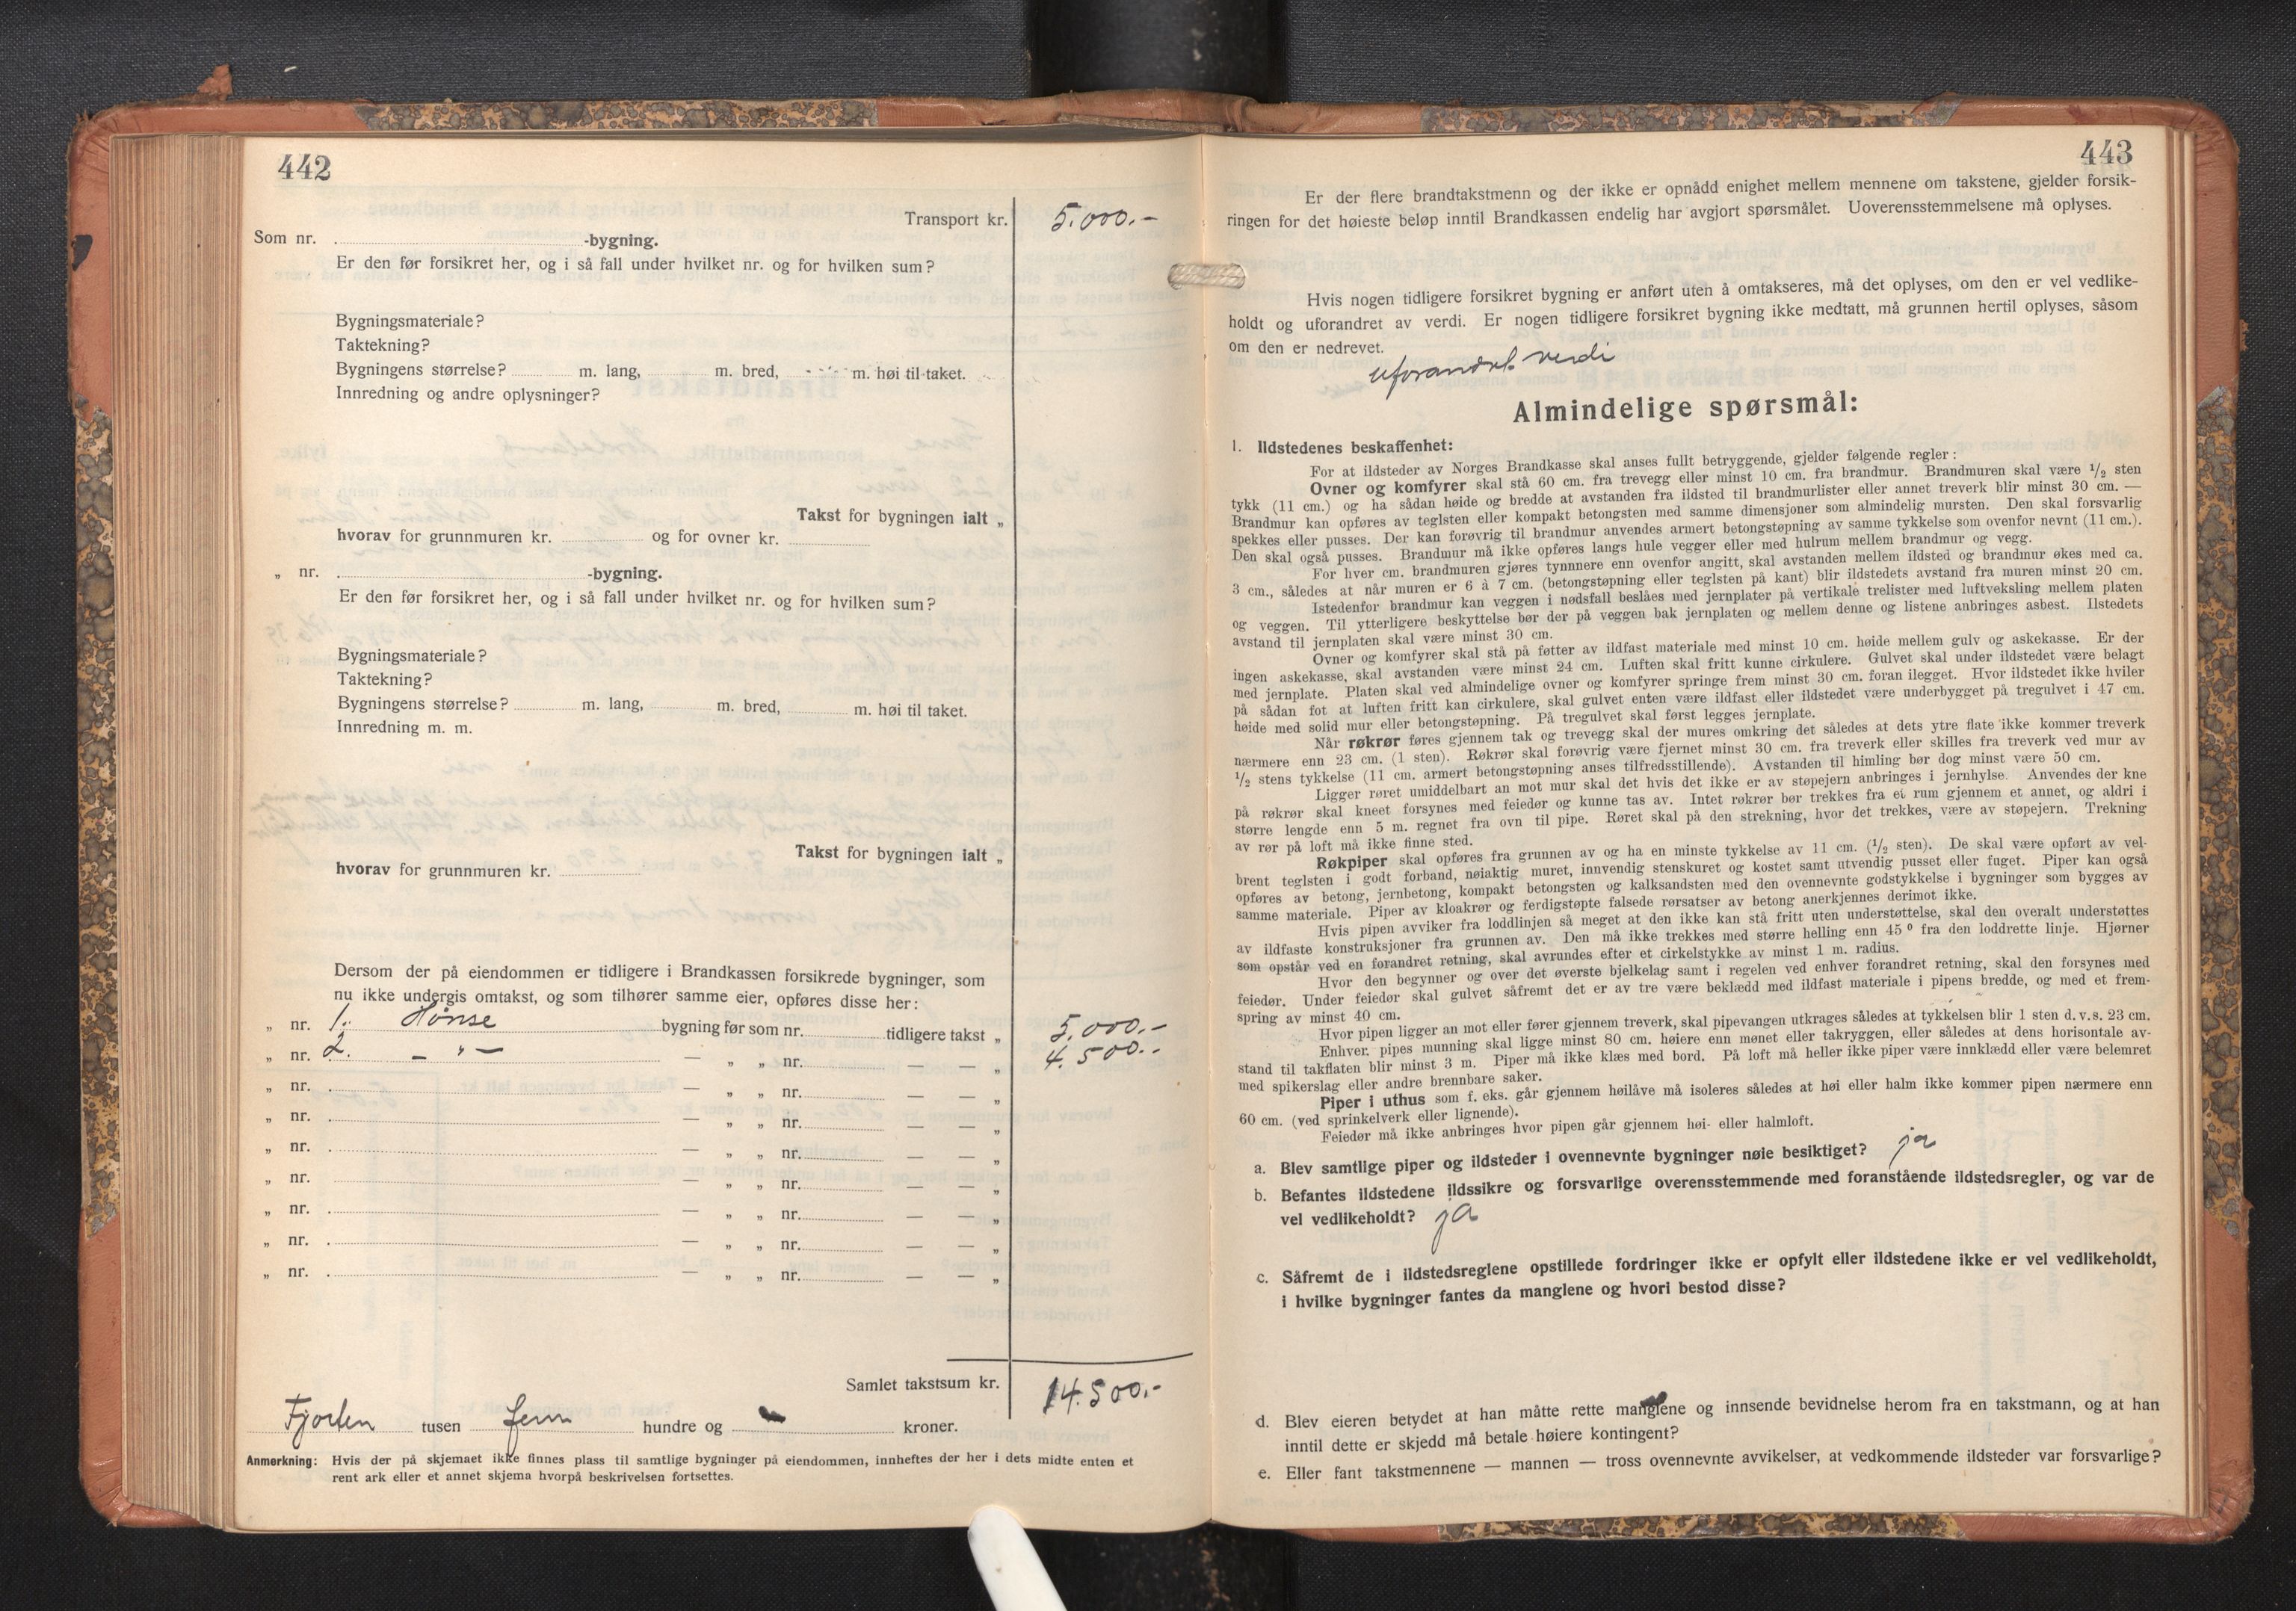 442
Transport kr. 5.000.-
Som nr. -bygning.
Er den før forsikret her, og i så fall under hvilket nr. og for hvilken sum?
Bygningsmateriale?
Taktekning?
Bygningens størrelse? m. lang, m. bred, m. høi til taket.
Innredning og andre oplysninger?
Takst for bygningen ialt „
hvorav for grunnmuren kr. og for ovner kr.
„ nr. -bygning.
Er den før forsikret her, og i så fall under hvilket nr. og for hvilken sum?
Bygningsmateriale?
Taktekning?
Bygningens størrelse? m. lang, m. bred, m. høi til taket.
Innredning m. m.
Takst for bygningen ialt „
hvorav for grunnmuren kr.
Dersom der på eiendommen er tidligere i Brandkassen forsikrede bygninger, som
nu ikke undergis omtakst, og som tilhører samme eier, opføres disse her:
„ nr. 1. Hønse bygning før som nr. tidligere takst „ 5.000.-
„ nr. 2. — „ — — „ „ nr. — — „ 4.500.-
„ nr. — „ „ nr. — — „
„ nr. — „ „ nr. — — „
„ nr. — „ „ nr. — — „
„ nr. — „ „ nr. — — „
„ nr. — „ „ nr. — — „
„ nr. — „ „ nr. — — „
„ nr. — „ „ nr. — — „
Samlet takstsum kr. 14.500.-
Fjorten tusen fem hundre og kroner.
Anmerkning: Hvis der på skjemaet ikke finnes plass til samtlige bygninger på eiendommen, innheftes der her i dets midte enten et
rent ark eller et annet skjema hvorpå beskrivelsen fortsettes.
443
Er der flere brandtakstmenn og der ikke er opnådd enighet mellem mennene om takstene, gjelder forsik-
ringen for det høieste beløp inntil Brandkassen endelig har avgjort spørsmålet. Uoverensstemmelsene må oplyses.
Hvis nogen tidligere forsikret bygning er anført uten å omtakseres, må det oplyses, om den er vel vedlike-
holdt og uforandret av verdi. Er nogen tidligere forsikret bygning ikke medtatt, må grunnen hertil oplyses, såsom
om den er nedrevet.
uforandret verdi
Almindelige spørsmål:
1. Ildstedenes beskaffenhet:
For at ildsteder av Norges Brandkasse skal anses fullt betryggende, gjelder følgende regler:
Ovner og komfyrer skal stå 60 cm. fra trevegg eller minst 10 cm. fra brandmur. Brandmuren skal være 1/2 sten
tykk (11 cm.) og ha sådan høide og bredde at avstanden fra ildsted til brandmurlister eller annet treverk blir minst 30 cm. —
Brandmur kan opføres av teglsten eller kompakt betongsten med samme dimensjoner som almindelig mursten. Den skal forsvarlig
spekkes eller pusses. Der kan forøvrig til brandmur anvendes armert betongstøpning av samme tykkelse som ovenfor nevnt (11 cm.).
Den skal også pusses. Brandmur må ikke opføres langs hule vegger eller med hulrum mellem brandmur og vegg.
For hver cm. brandmuren gjøres tynnnere enn ovenfor angitt, skal avstanden mellem ildsted og brandmur økes med ca.
3 cm., således at når muren er 6 à 7 cm. (betongstøpning eller teglsten på kant) blir ildstedets avstand fra muren minst 20 cm.
Istedenfor brandmur kan veggen i nødsfall beslåes med jernplater på vertikale trelister med luftveksling mellem platen
og veggen. Til ytterligere beskyttelse bør der på veggen bak jernplaten og mellem denne og listene anbringes asbest. Ilstedets
avstand til jernplaten skal være minst 30 cm.
Ovner og komfyrer skal stå på føtter av ildfast materiale med minst 10 cm. høide mellem gulv og askekasse. Er der
ingen askekasse, skal avstanden være minst 24 cm. Luften skal fritt kunne cirkulere. Gulvet skal under ildstedet være belagt
med jernplate. Platen skal ved almindelige ovner og komfyrer springe frem minst 30 cm. foran ilegget. Hvor ildstedet ikke hviler
på sådan fot at luften fritt kan cirkulere, skal gulvet enten være ildfast eller ildstedet være underbygget på tregulvet i 47 cm.
høide med solid mur eller betongstøpning. På tregulvet skal først legges jernplate.
Når røkrør føres gjennem tak og trevegg skal der mures omkring det således at dets ytre flate ikke kommer treverk
nærmere enn 23 cm. (1 sten). Røkrør skal forøvrig være fjernet minst 30 cm. fra treverk eller skilles fra treverk ved mur av
1/2 stens tykkelse (11 cm. armert betongstøpning anses tilfredsstillende). Avstanden til himling bør dog minst være 50 cm.
Ligger røret umiddelbart an mot mur skal det hvis det ikke er av støpejern anbringes i jernhylse. Anvendes der kne
på røkrør skal kneet forsynes med feiedør og kunne tas av. Intet røkrør bør trekkes fra et rum gjennem et annet, og aldri i
større lengde enn 5 m. regnet fra ovn til pipe. Røret skal på den strekning, hvor det trekkes, være av støpejern. Trekning
av rør på loft må ikke finne sted.
Røkpiper skal opføres fra grunnen av og ha en minste tykkelse av 11 cm. (1/2 sten). De skal være opført av vel-
brent teglsten i godt forband, nøiaktig muret, innvendig stenskuret og kostet samt utvendig pusset eller fuget. Piper kan også
opføres av betong, jernbetong, kompakt betongsten og kalksandsten med den ovennevnte godstykkelse i bygninger som bygges av
samme materiale. Piper av kloakrør og ferdigstøpte falsede rørsatser av betong anerkjennes derimot ikke.
Hvis pipen avviker fra loddlinjen så meget at den ikke kan stå fritt uten understøttelse, skal den overalt understøttes
av ildfaste konstruksjoner fra grunnen av. Den må ikke trekkes med større helling enn 45 ° fra den loddrette linje. Hjørner
som opstår ved en forandret retning, skal avrundes efter et cirkelstykke av minst 1 m. radius.
Hvor den begynner og over det øverste bjelkelag samt i regelen ved enhver forandret retning, skal den forsynes med
feiedør. Under feiedør skal gulvet såfremt det er av tre være beklædd med ildfast materiale i pipens bredde, og med et frem-
spring av minst 40 cm.
Hvor pipen ligger an mot eller fører gjennem treverk, skal pipevangen utkrages således at tykkelsen blir 1 sten d. v. s. 23 cm.
Enhver pipes munning skal ligge minst 80 cm. høiere enn mønet eller takryggen, eller således at dens horisontale av-
stand til takflaten blir minst 3 m. Piper må ikke klæs med bord. På loft må heller ikke piper være innklædd eller være belemret
med spikerslag eller andre brennbare saker.
Piper i uthus som f. eks. går gjennem høilåve må isoleres således at høi eller halm ikke kommer pipen nærmere enn
60 cm. (ved sprinkelverk eller lignende).
Feiedør må ikke anbringes hvor pipen går gjennem høi- eller halmloft.
a. Blev samtlige piper og ildsteder i ovennevnte bygninger nøie besiktiget? ja
b. Befantes ildstedene ildssikre og forsvarlige overensstemmende med foranstående ildstedsregler, og var de
vel vedlikeholdt? ja
c. Såfremt de i ildstedsreglene opstillede fordringer ikke er opfylt eller ildstedene ikke er vel vedlikeholdt,
i hvilke bygninger fantes da manglene og hvori bestod disse?
d. Blev eieren betydet at han måtte rette manglene og innsende bevidnelse herom fra en takstmann, og at han
inntil dette er skjedd må betale høiere kontingent?
e. Eller fant takstmennene — mannen — tross ovennevnte avvikelser, at vedkommende ildsteder var forsvarlige?